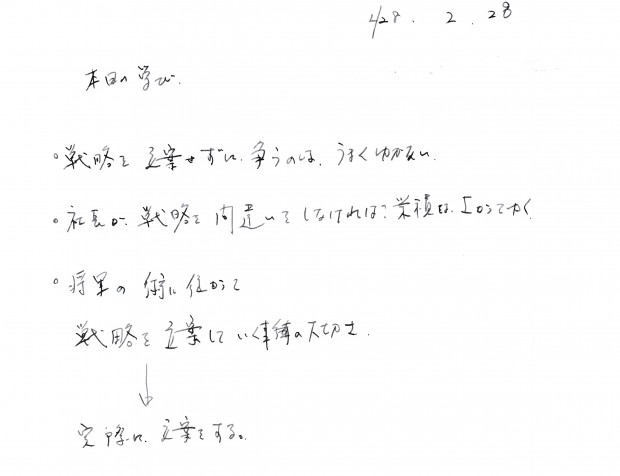 H28. 2. 28
本日の学び.
・戦略を立案せずに、争うのは、うまくゆかない
・社長が、戦略を間違いてしなければ、業績は、上がってゆく
・将軍の術に任かって
戦略を立案していく事の大切さ.
↓
実際に、立案をする。